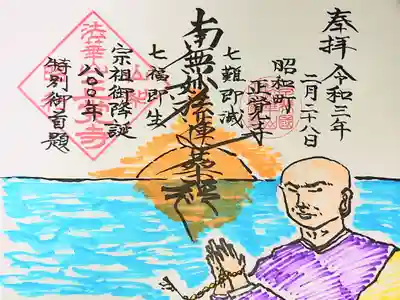 奉拝 令和三年
二月二十八日
昭和町
正覚寺
七難即滅
南無妙法蓮華経
七福即生
宗祖御降誕
八〇〇年
特別御首題
法華